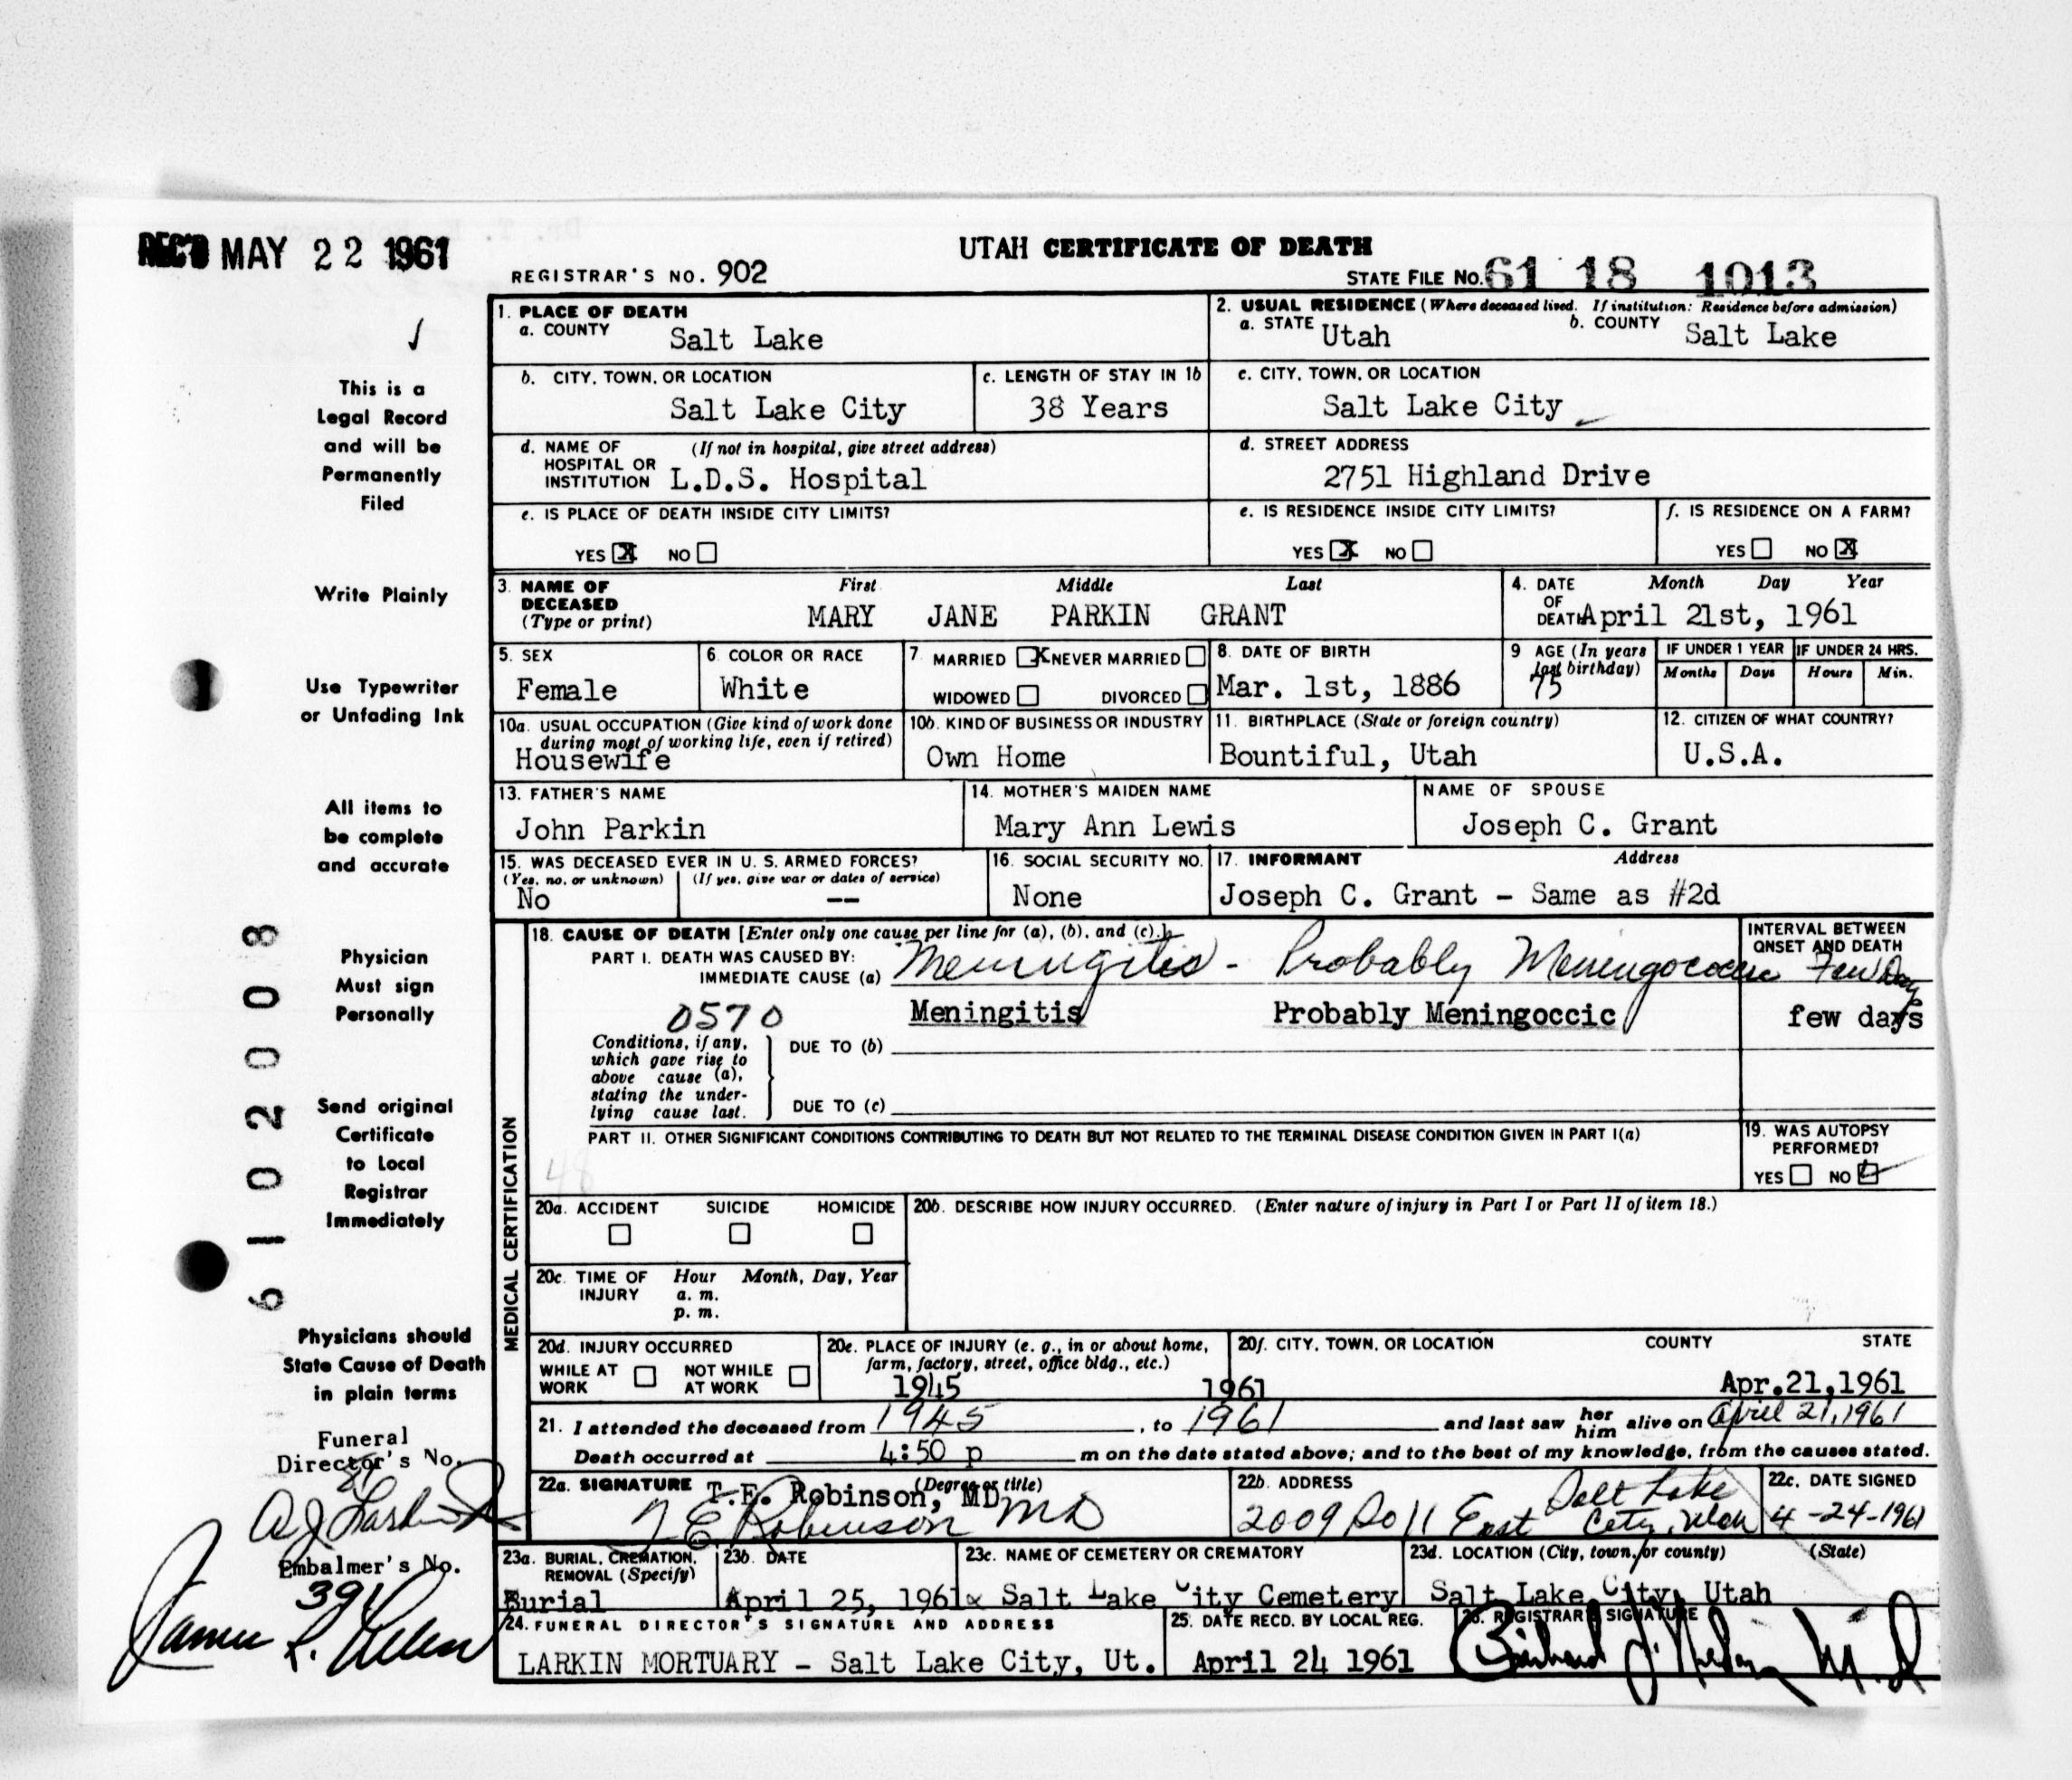 REC'D MAY 22 1961
UTAH CERTIFICATE OF DEATH
REGISTRAR'S NO. 902
STATE FILE NO. 61 18 1013
This is a
Legal Record
and will be
Permanently
Filed
Write Plainly
Use Typewriter
or Unfading Ink
All items to
be complete
and accurate
Physician
Must sign
Personally
Send original
Certificate
to Local
Registrar
Immediately
Physicians should
State Cause of Death
in plain terms
Funeral
Director's No.
Embalmer's No.
391
6102008
1. PLACE OF DEATH
a. COUNTY Salt Lake
2. USUAL RESIDENCE (Where deceased lived. If institution: Residence before admission)
a. STATE Utah b. COUNTY Salt Lake
b. CITY, TOWN, OR LOCATION
Salt Lake City
c. LENGTH OF STAY IN 1b
38 Years
c. CITY, TOWN, OR LOCATION
Salt Lake City
d. NAME OF HOSPITAL OR INSTITUTION (If not in hospital, give street address)
L.D.S. Hospital
d. STREET ADDRESS
2751 Highland Drive
e. IS PLACE OF DEATH INSIDE CITY LIMITS?
YES X NO
e. IS RESIDENCE INSIDE CITY LIMITS?
YES X NO
f. IS RESIDENCE ON A FARM?
YES NO X
3. NAME OF DECEASED (Type or print) First Middle Last
MARY JANE PARKIN GRANT
4. DATE OF DEATH Month Day Year
April 21st, 1961
5. SEX
Female
6. COLOR OR RACE
White
7. MARRIED X NEVER MARRIED
WIDOWED DIVORCED
8. DATE OF BIRTH
Mar. 1st, 1886
9 AGE (In years last birthday)
75
IF UNDER 1 YEAR
Months Days
IF UNDER 24 HRS.
Hours Min.
10a. USUAL OCCUPATION (Give kind of work done during most of working life, even if retired)
Housewife
10b. KIND OF BUSINESS OR INDUSTRY
Own Home
11. BIRTHPLACE (State or foreign country)
Bountiful, Utah
12. CITIZEN OF WHAT COUNTRY?
U.S.A.
13. FATHER'S NAME
John Parkin
14. MOTHER'S MAIDEN NAME
Mary Ann Lewis
NAME OF SPOUSE
Joseph C. Grant
15. WAS DECEASED EVER IN U. S. ARMED FORCES?
(Yes, no, or unknown) (If yes, give war or dates of service)
No --
16. SOCIAL SECURITY NO.
None
17. INFORMANT Address
Joseph C. Grant - Same as #2d
MEDICAL CERTIFICATION
18. CAUSE OF DEATH [Enter only one cause per line for (a), (b), and (c).]
PART I. DEATH WAS CAUSED BY:
IMMEDIATE CAUSE (a) Meningitis - Probably Meningococcic
INTERVAL BETWEEN ONSET AND DEATH
Few Days
0570 Meningitis Probably Meningoccic few days
Conditions, if any, which gave rise to above cause (a), stating the underlying cause last.
DUE TO (b)
DUE TO (c)
PART II. OTHER SIGNIFICANT CONDITIONS CONTRIBUTING TO DEATH BUT NOT RELATED TO THE TERMINAL DISEASE CONDITION GIVEN IN PART I(a)
48
19. WAS AUTOPSY PERFORMED?
YES NO
20a. ACCIDENT SUICIDE HOMICIDE
20b. DESCRIBE HOW INJURY OCCURRED. (Enter nature of injury in Part I or Part II of item 18.)
20c. TIME OF INJURY Hour Month, Day, Year
a. m.
p. m.
20d. INJURY OCCURRED
WHILE AT WORK NOT WHILE AT WORK
20e. PLACE OF INJURY (e. g., in or about home, farm, factory, street, office bldg., etc.)
20f. CITY, TOWN, OR LOCATION COUNTY STATE
1945 1961 Apr.21,1961
21. I attended the deceased from 1945, to 1961 and last saw her him alive on April 21, 1961
Death occurred at 4:50 p m on the date stated above; and to the best of my knowledge, from the causes stated.
22a. SIGNATURE (Degree or title)
T.E. Robinson, MD
T E Robinson MD
22b. ADDRESS
2009 So 11 East Salt Lake City, Utah
22c. DATE SIGNED
4-24-1961
23a. BURIAL, CREMATION, REMOVAL (Specify)
Burial
23b. DATE
April 25, 1961
23c. NAME OF CEMETERY OR CREMATORY
Salt Lake City Cemetery
23d. LOCATION (City, town, or county) (State)
Salt Lake City, Utah
24. FUNERAL DIRECTOR'S SIGNATURE AND ADDRESS
LARKIN MORTUARY - Salt Lake City, Ut.
25. DATE RECD. BY LOCAL REG.
April 24 1961
26. REGISTRAR'S SIGNATURE